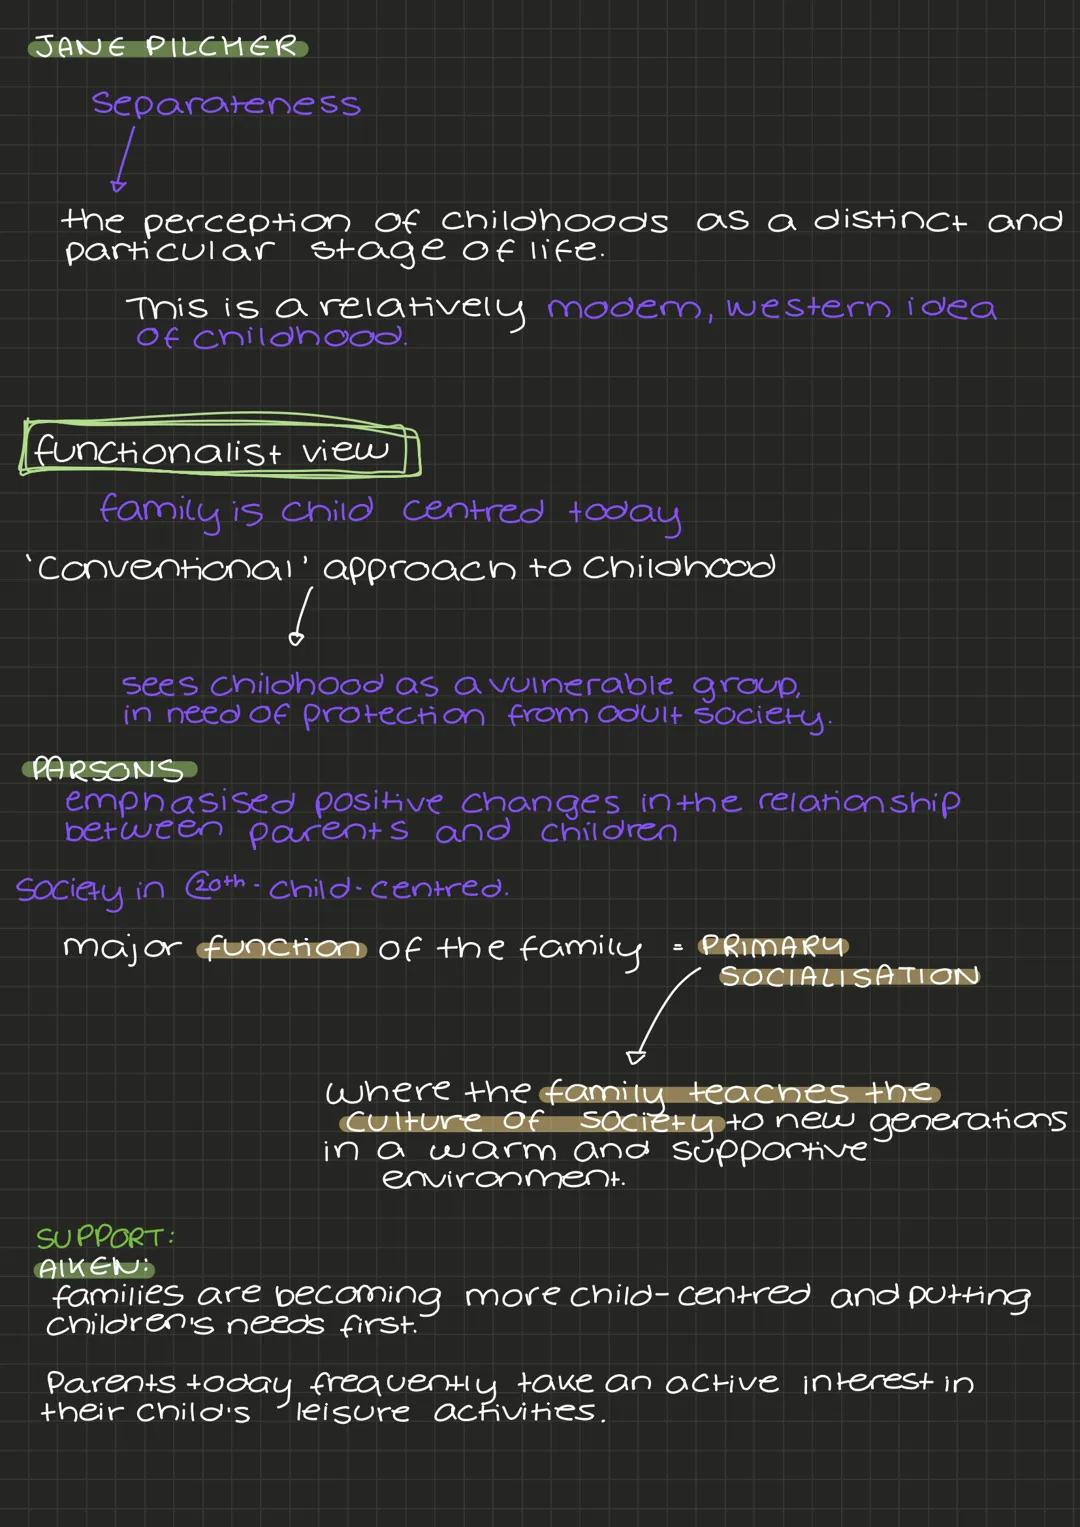 JANE PILCHER
Separateness
the perception of childhoods as a distinct and
particular stage of life.
This is a relatively modern, western idea
of childhood.
functionalist view
family is child centred today
'Conventional' approach to Childhood
sees childhood as a vulnerable group,
in need of protection from adult society.
PARSONS
emphasised positive changes in the relationship
between parents and children
society in 20th - child-centred.
major function of the family = PRIMARY
SOCIALISATION
where the family teaches the
culture of society to new generations
in a warm and supportive
environment.
SUPPORT:
AIKEN:
families are becoming more child-centred and putting
children's needs first.
Parents today frequently take an active interest in
their child's leisure activities.